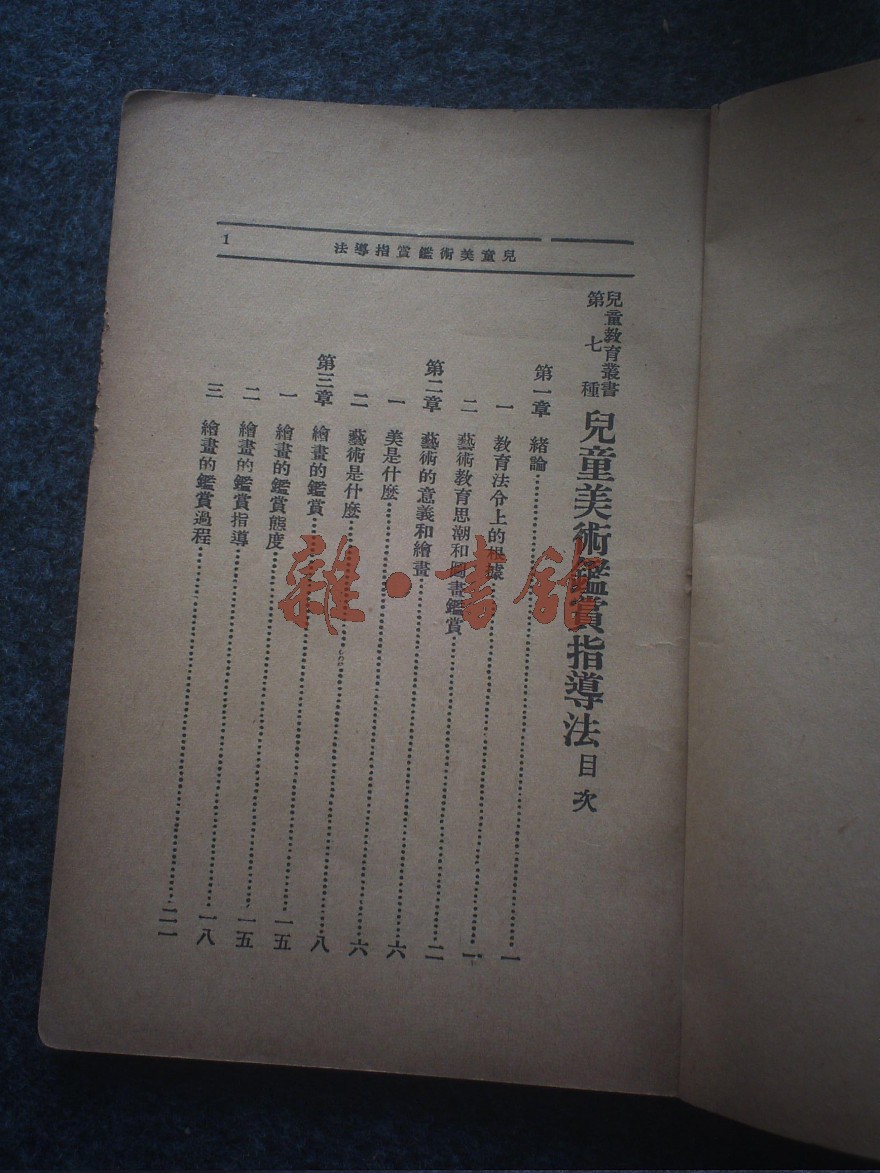 兒童美術鑑賞指導法
1
兒童教育叢書
第七種
兒童美術鑑賞指導法 目次
第一章 緒論……一
一 教育法令上的根據……一
二 藝術教育思潮和圖畫鑑賞……二
第二章 藝術的意義和繪畫……六
一 美是什麼……六
二 藝術是什麼……八
第三章 繪畫的鑑賞……一五
一 繪畫的鑑賞態度……一五
二 繪畫的鑑賞指導……一八
三 繪畫的鑑賞過程……二一
雜·書館